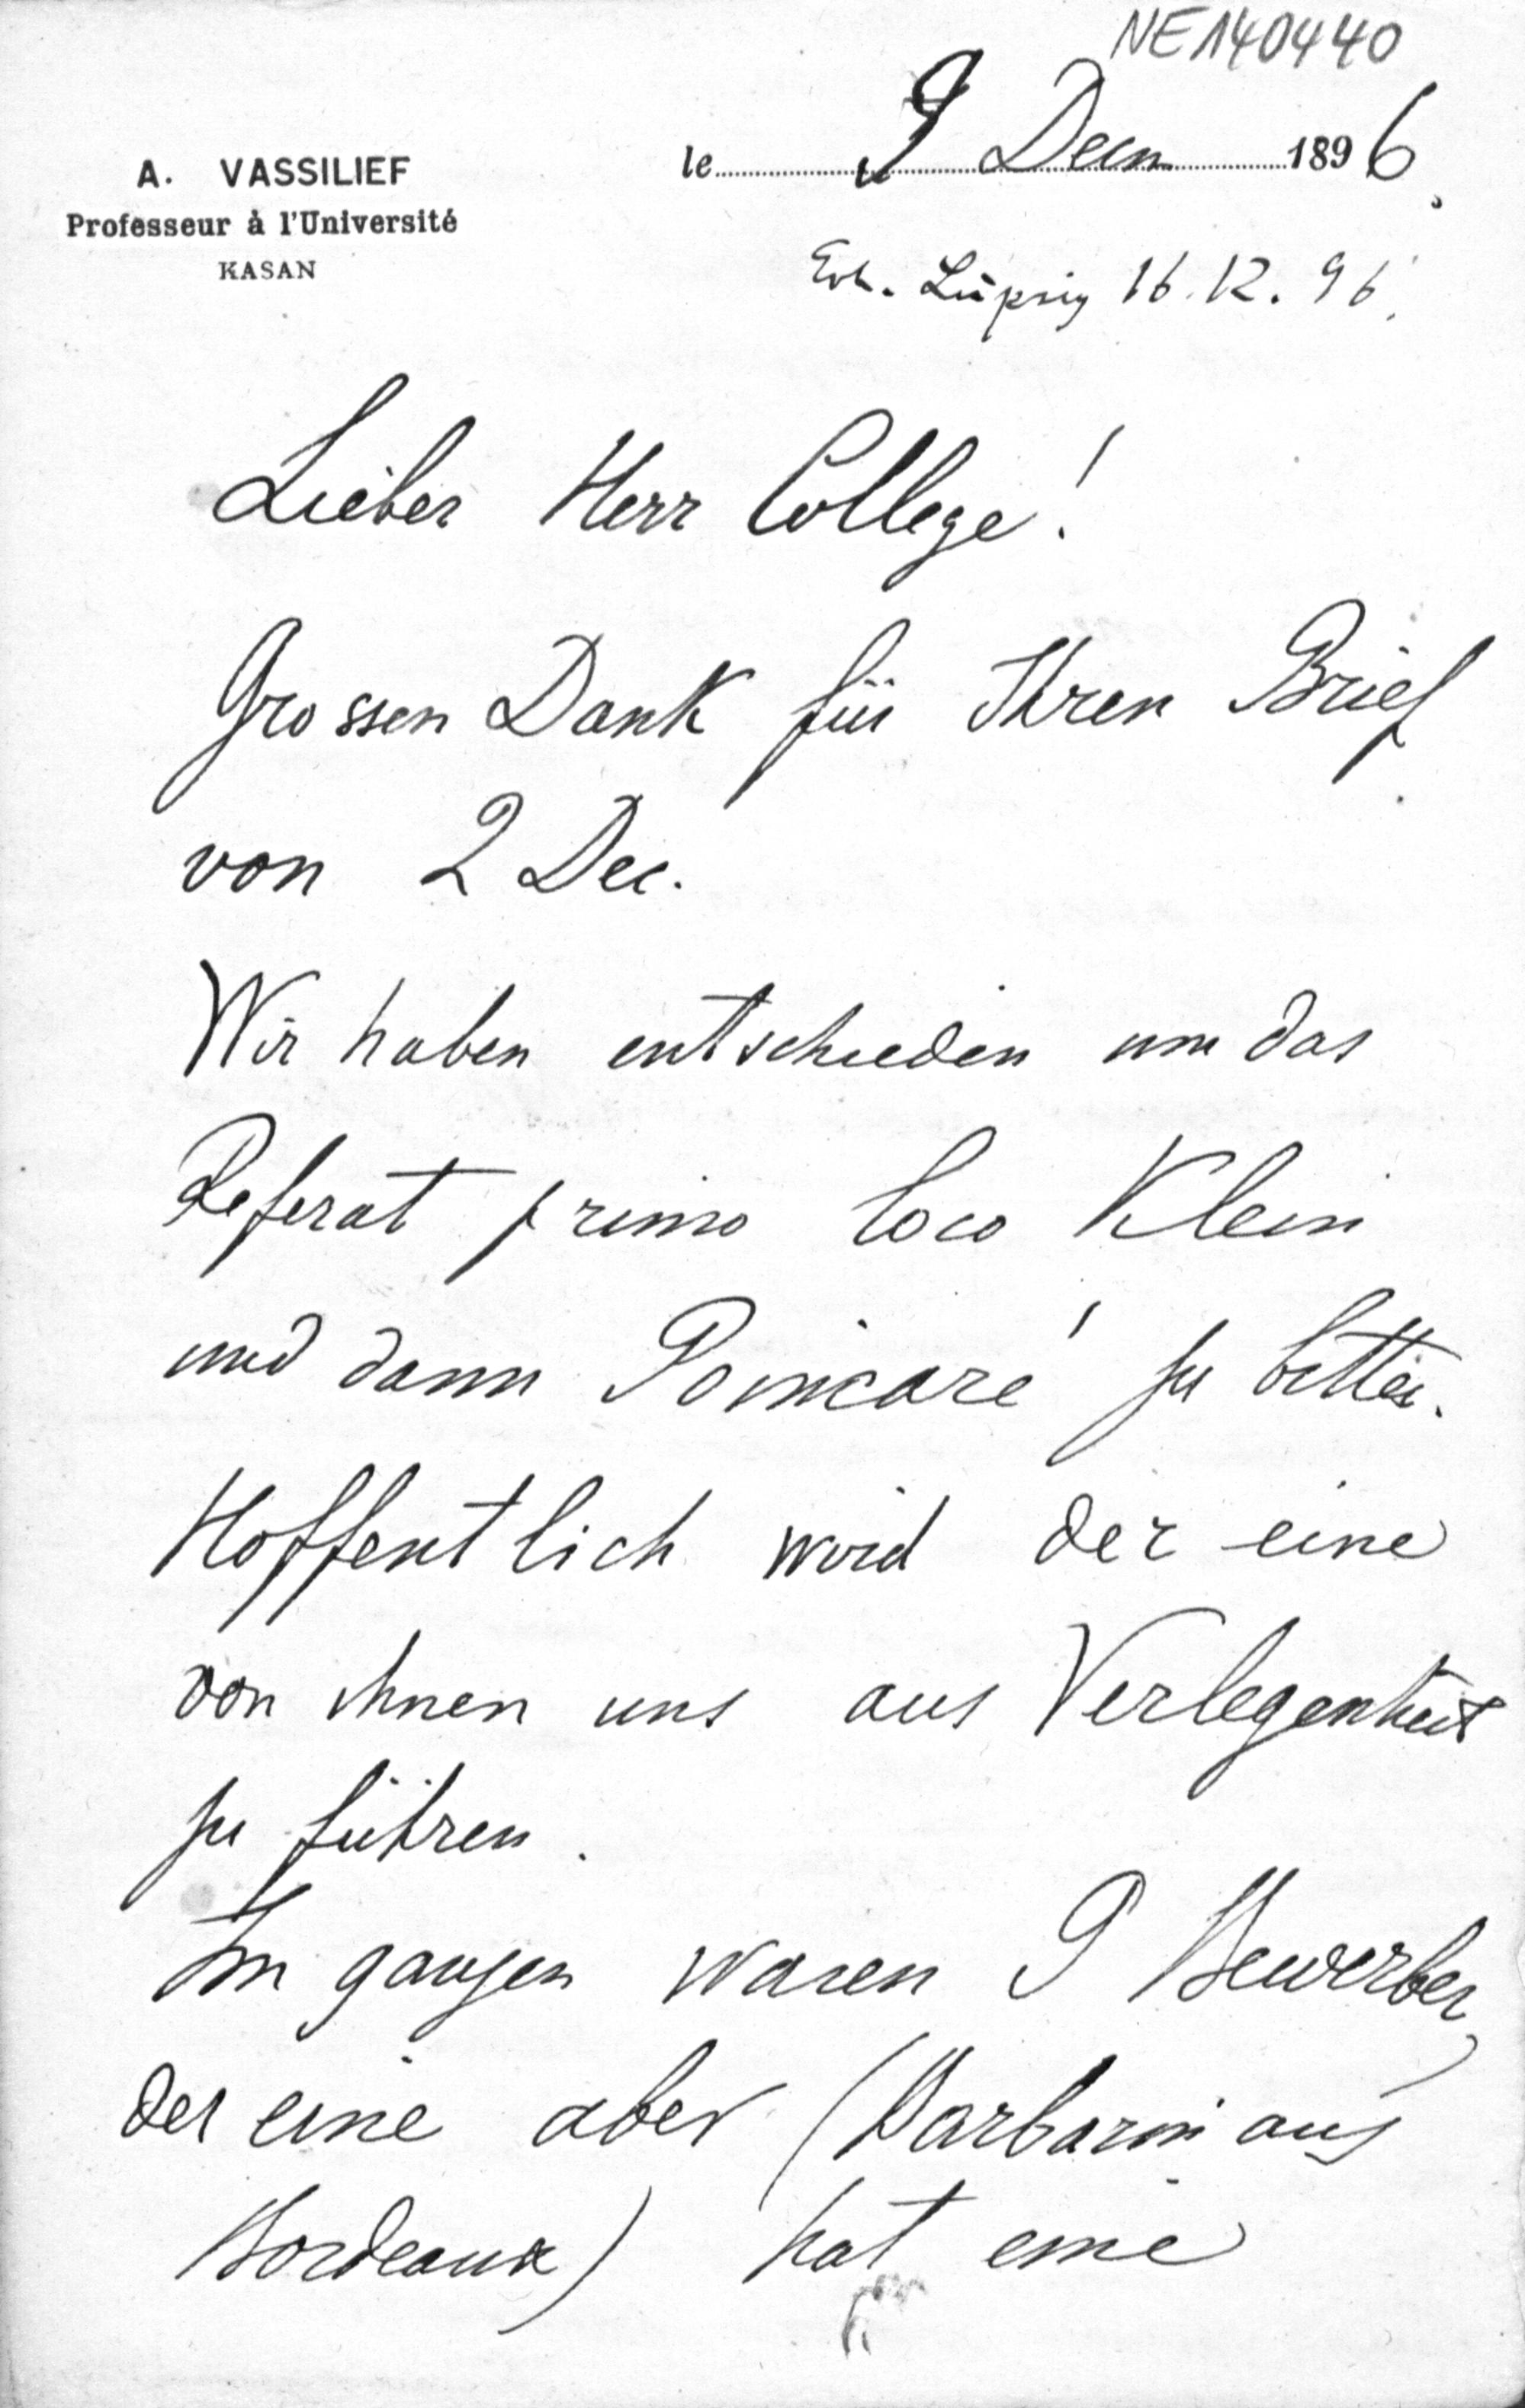 NE140440
le 9 Decm 1896.
A. VASSILIEF
Professeur à l'Université
KASAN
Erh. Leipzig 16.12.96.
Lieber Herr College!
Grossen Dank für Ihren Brief
von 2 Dec.
Wir haben entschieden um das
Referat primo loco Klein
und dann Poincaré zu bitten.
Hoffentlich wird der eine
von ihnen uns aus Verlegenheit
zu führen.
Im ganzen waren 9 Bewerber,
der eine aber (Barbarin aus
Bordeaux) hat eine